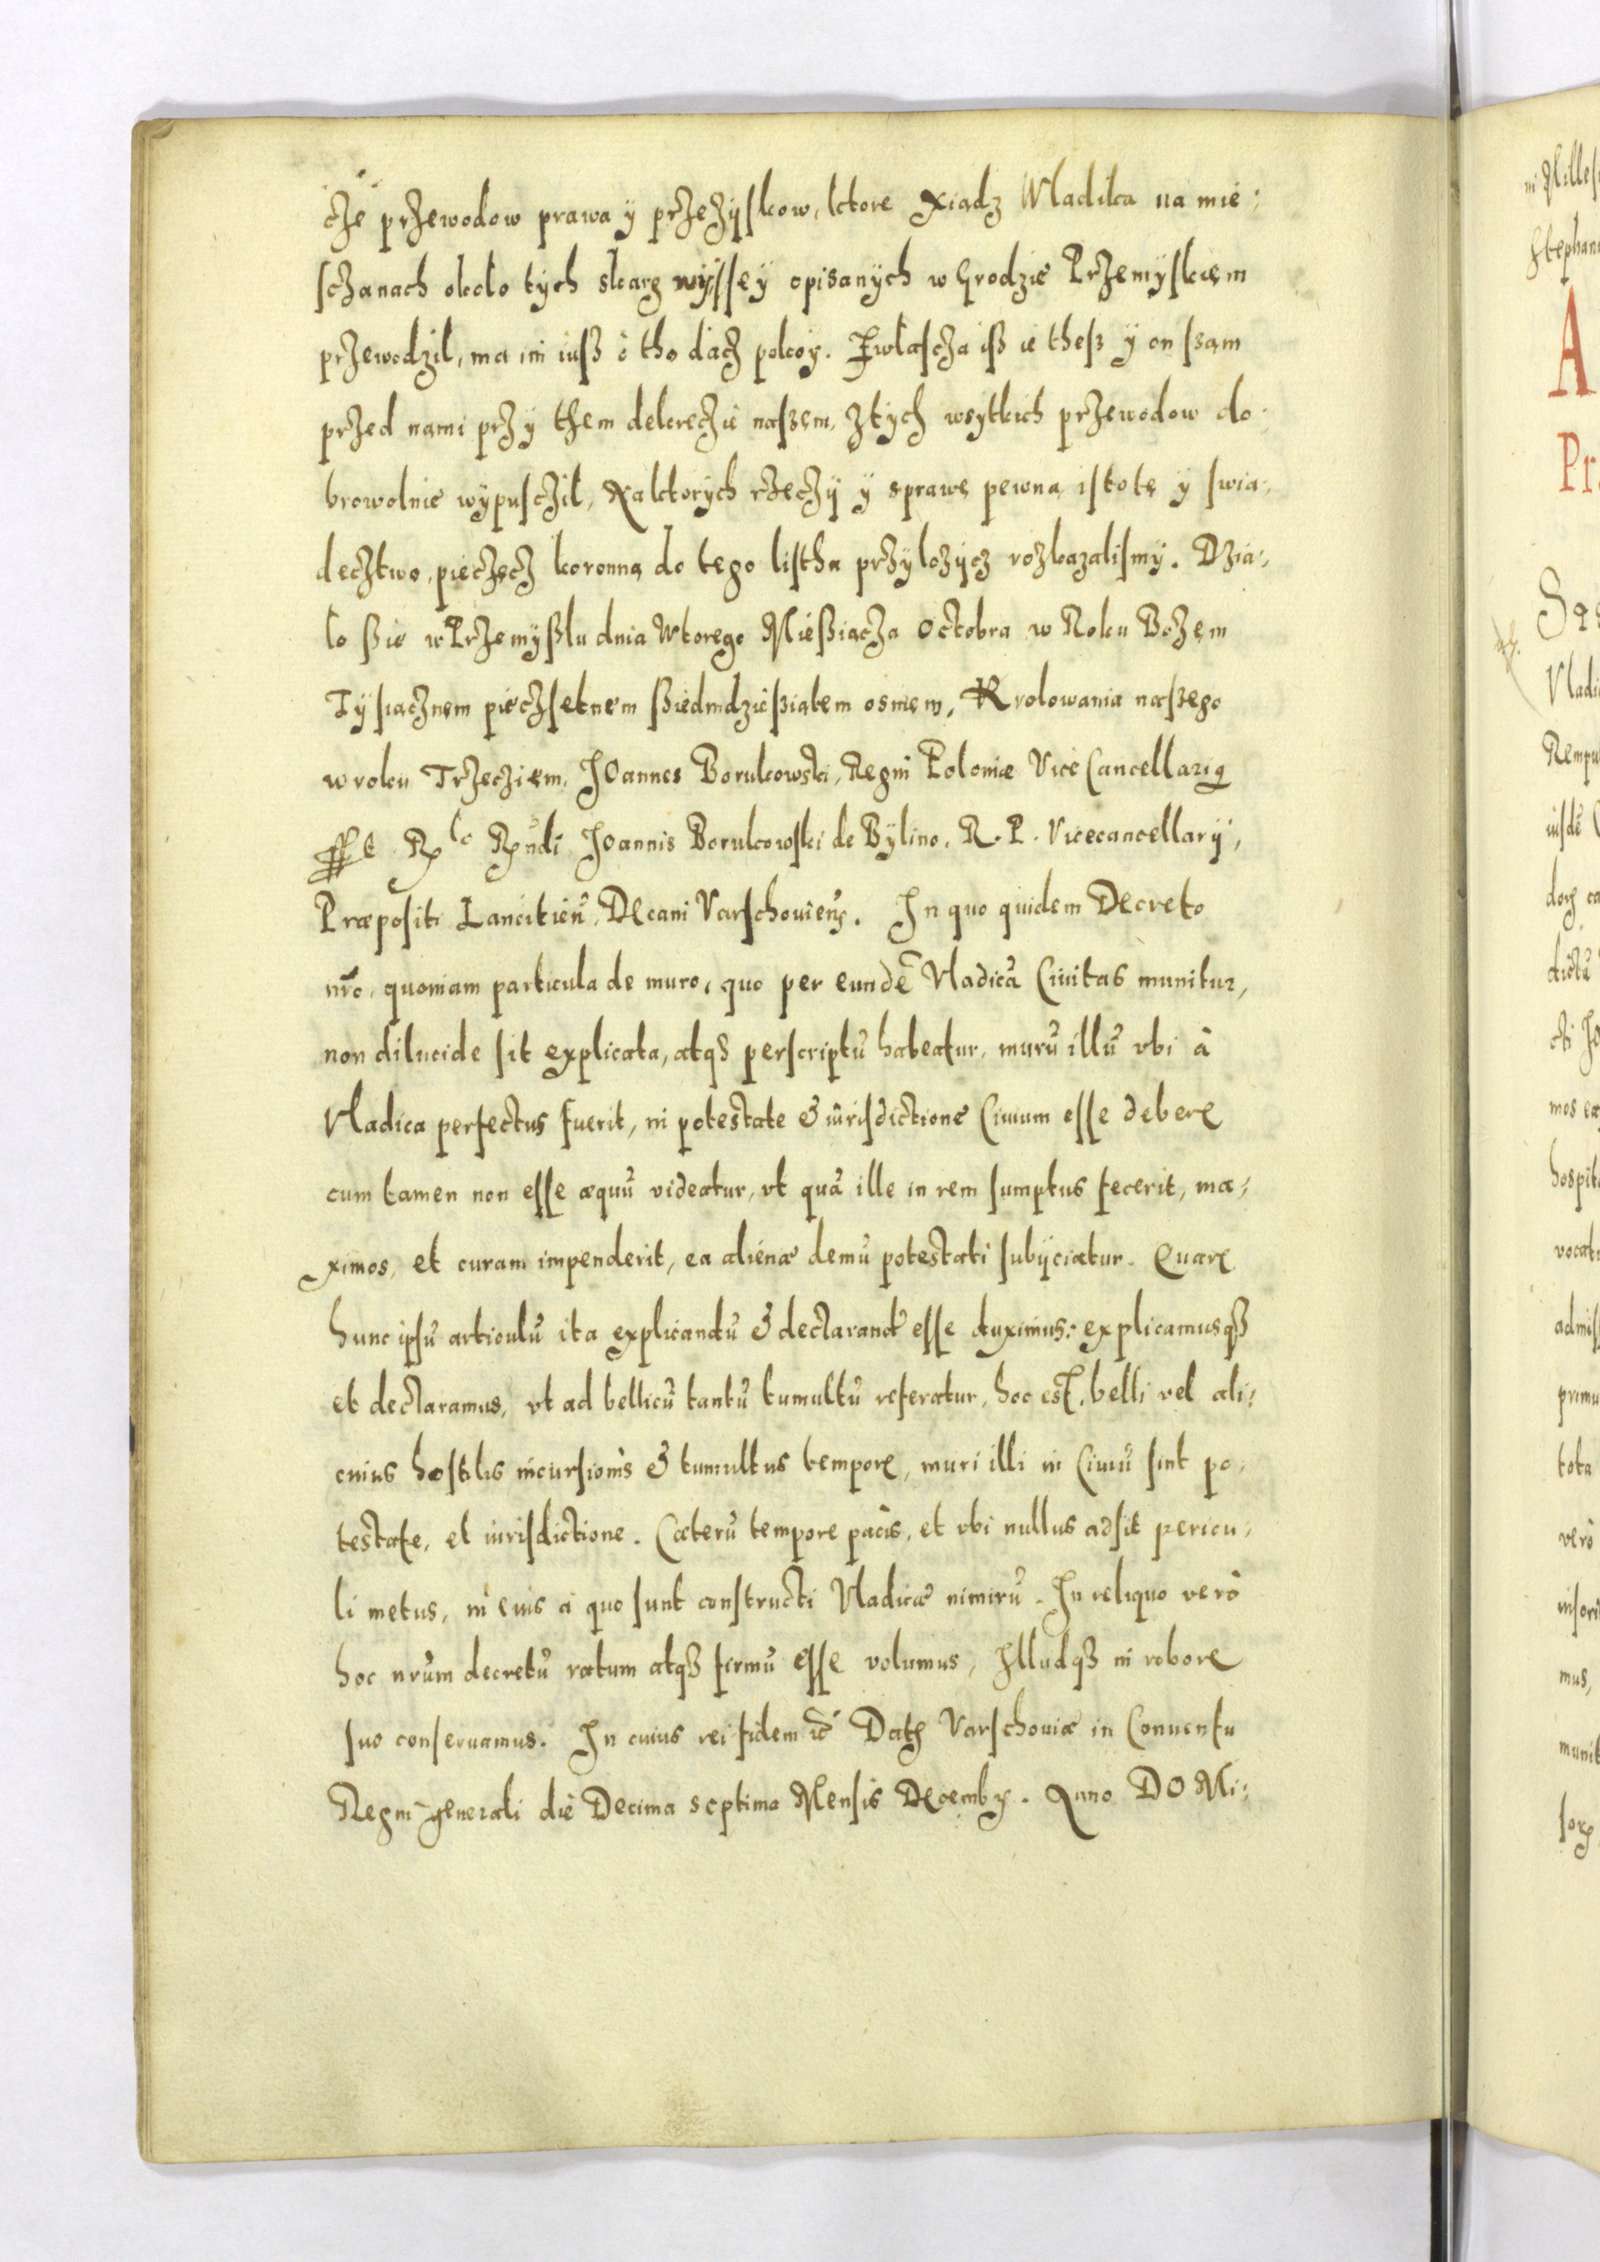 cże przewodow prawa ÿ przezÿskow, ktore Xiadz Wladika na mie:
sczanach około tÿch skarg wÿsseÿ opisanÿch w Grodzie Przemyskiem
przewodzil, ma im iuß o tho dacz pokoÿ. Zwłascza iß ie theß ÿ on sam
przed nami prz ÿ them dekreczie naszem, ztÿch wsytkich przewodow do:
browolnie wÿpusczil, Na ktorÿch rzeczÿ ÿ sprawe pewna istote ÿ swia:
decztwo, pieczęcz koronną do tego listha przÿlozÿcz roskazalismÿ. Dzia:
lo ßie w Przemÿßlu dnia Wtorego Mießiącza Octobra w Roku Bożem
Tÿsiacznem pieczsetnem ßiedmdzießiatem osmem, Krolowania naszego
w roku Trzecziem, JOannes Borukowski, Regni Poloniæ Vice Cancellariꝰ
Rlo Rndi JOannis Borukowski de Bÿlino, R. P. Vicecancellarÿ,
Præpositi Lancitień, Decani Varschovień. In quo quidem Decreto
nrо̄, quoniam particula de muro, quo per eundē Vladicā Ciuitas munitur,
non dilucide sit explicata, atqʒ perscriptū habeatur, murū illū vbi à
Vladica perfectus fuerit, in potestate & iurisdictione Ciuium esse debere
cum tamen non esse æquū videatur, vt quā ille in rem sumptus fecerit, ma:
ximos, et curam impenderit, ea alienæ demū potestati subÿciatur. Quare
hunc ipsū articulū ita explicandū & declarandū esse duximus: explicamusqʒ
et declaramus, vt ad bellicū tantū tumultū referatur, hoc est, belli vel ali:
cuius hostilis incursionis & tumultus tempore, muri illi in Ciuiū sint po:
testate, et iurisdictione. Cæterū tempore pacis, et vbi nullus adsit pericu:
li metus, in eius a quo sunt constructi Vladicæ nimirū. In reliquo verò
hoc nrūm decretū ratum atqʒ firmū esse volumus, Illudqʒ in robore
suo conseruamus. In cuius rei fidem etc̄ Datꝭ Varschouiæ in Conuentu
Regni generali die Decima septima Mensis Decembꝭ. Anno DOMi: